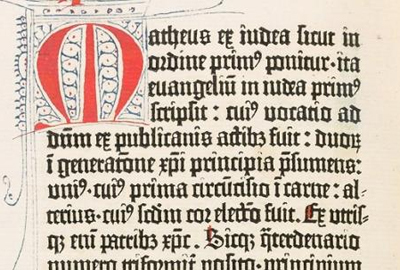 Matheus ex iudea sicut in
ordine primꝰ ponitur·ita
euangeliū in iudea primꝰ
scripsit : cuiꝰ vocatio ad
dūm ex publicanis actibꝫ fuit : duoꝝ
ī generatōne xp̄i principia p̄sumens:
vniꝰ·cuiꝰ prima circūcisio ī carne : al-
terius·cuiꝰ scdm cor electō fuit. Ex vtris-
qꝫ eni patribꝫ xp̄c. Sicqꝫ q̄terdenario
numero triformit posito·principium